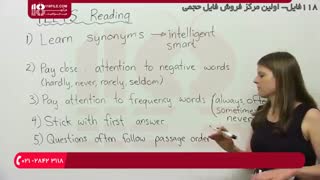 ۱۱۸فایل- اولین مرکز فروش فایل حجمی
118FILE.COM
Reading
1) Learn synonyms → intelligent
smart
2) Pay close attention to negative words
(hardly, never, rarely, seldom)
3) Pay attention to frequency words (always, often
sometimes
never
4) Stick with first answer
5) Questions often follow passage order
۰۲۱-۲۸۴۲ ۳۹۱۸